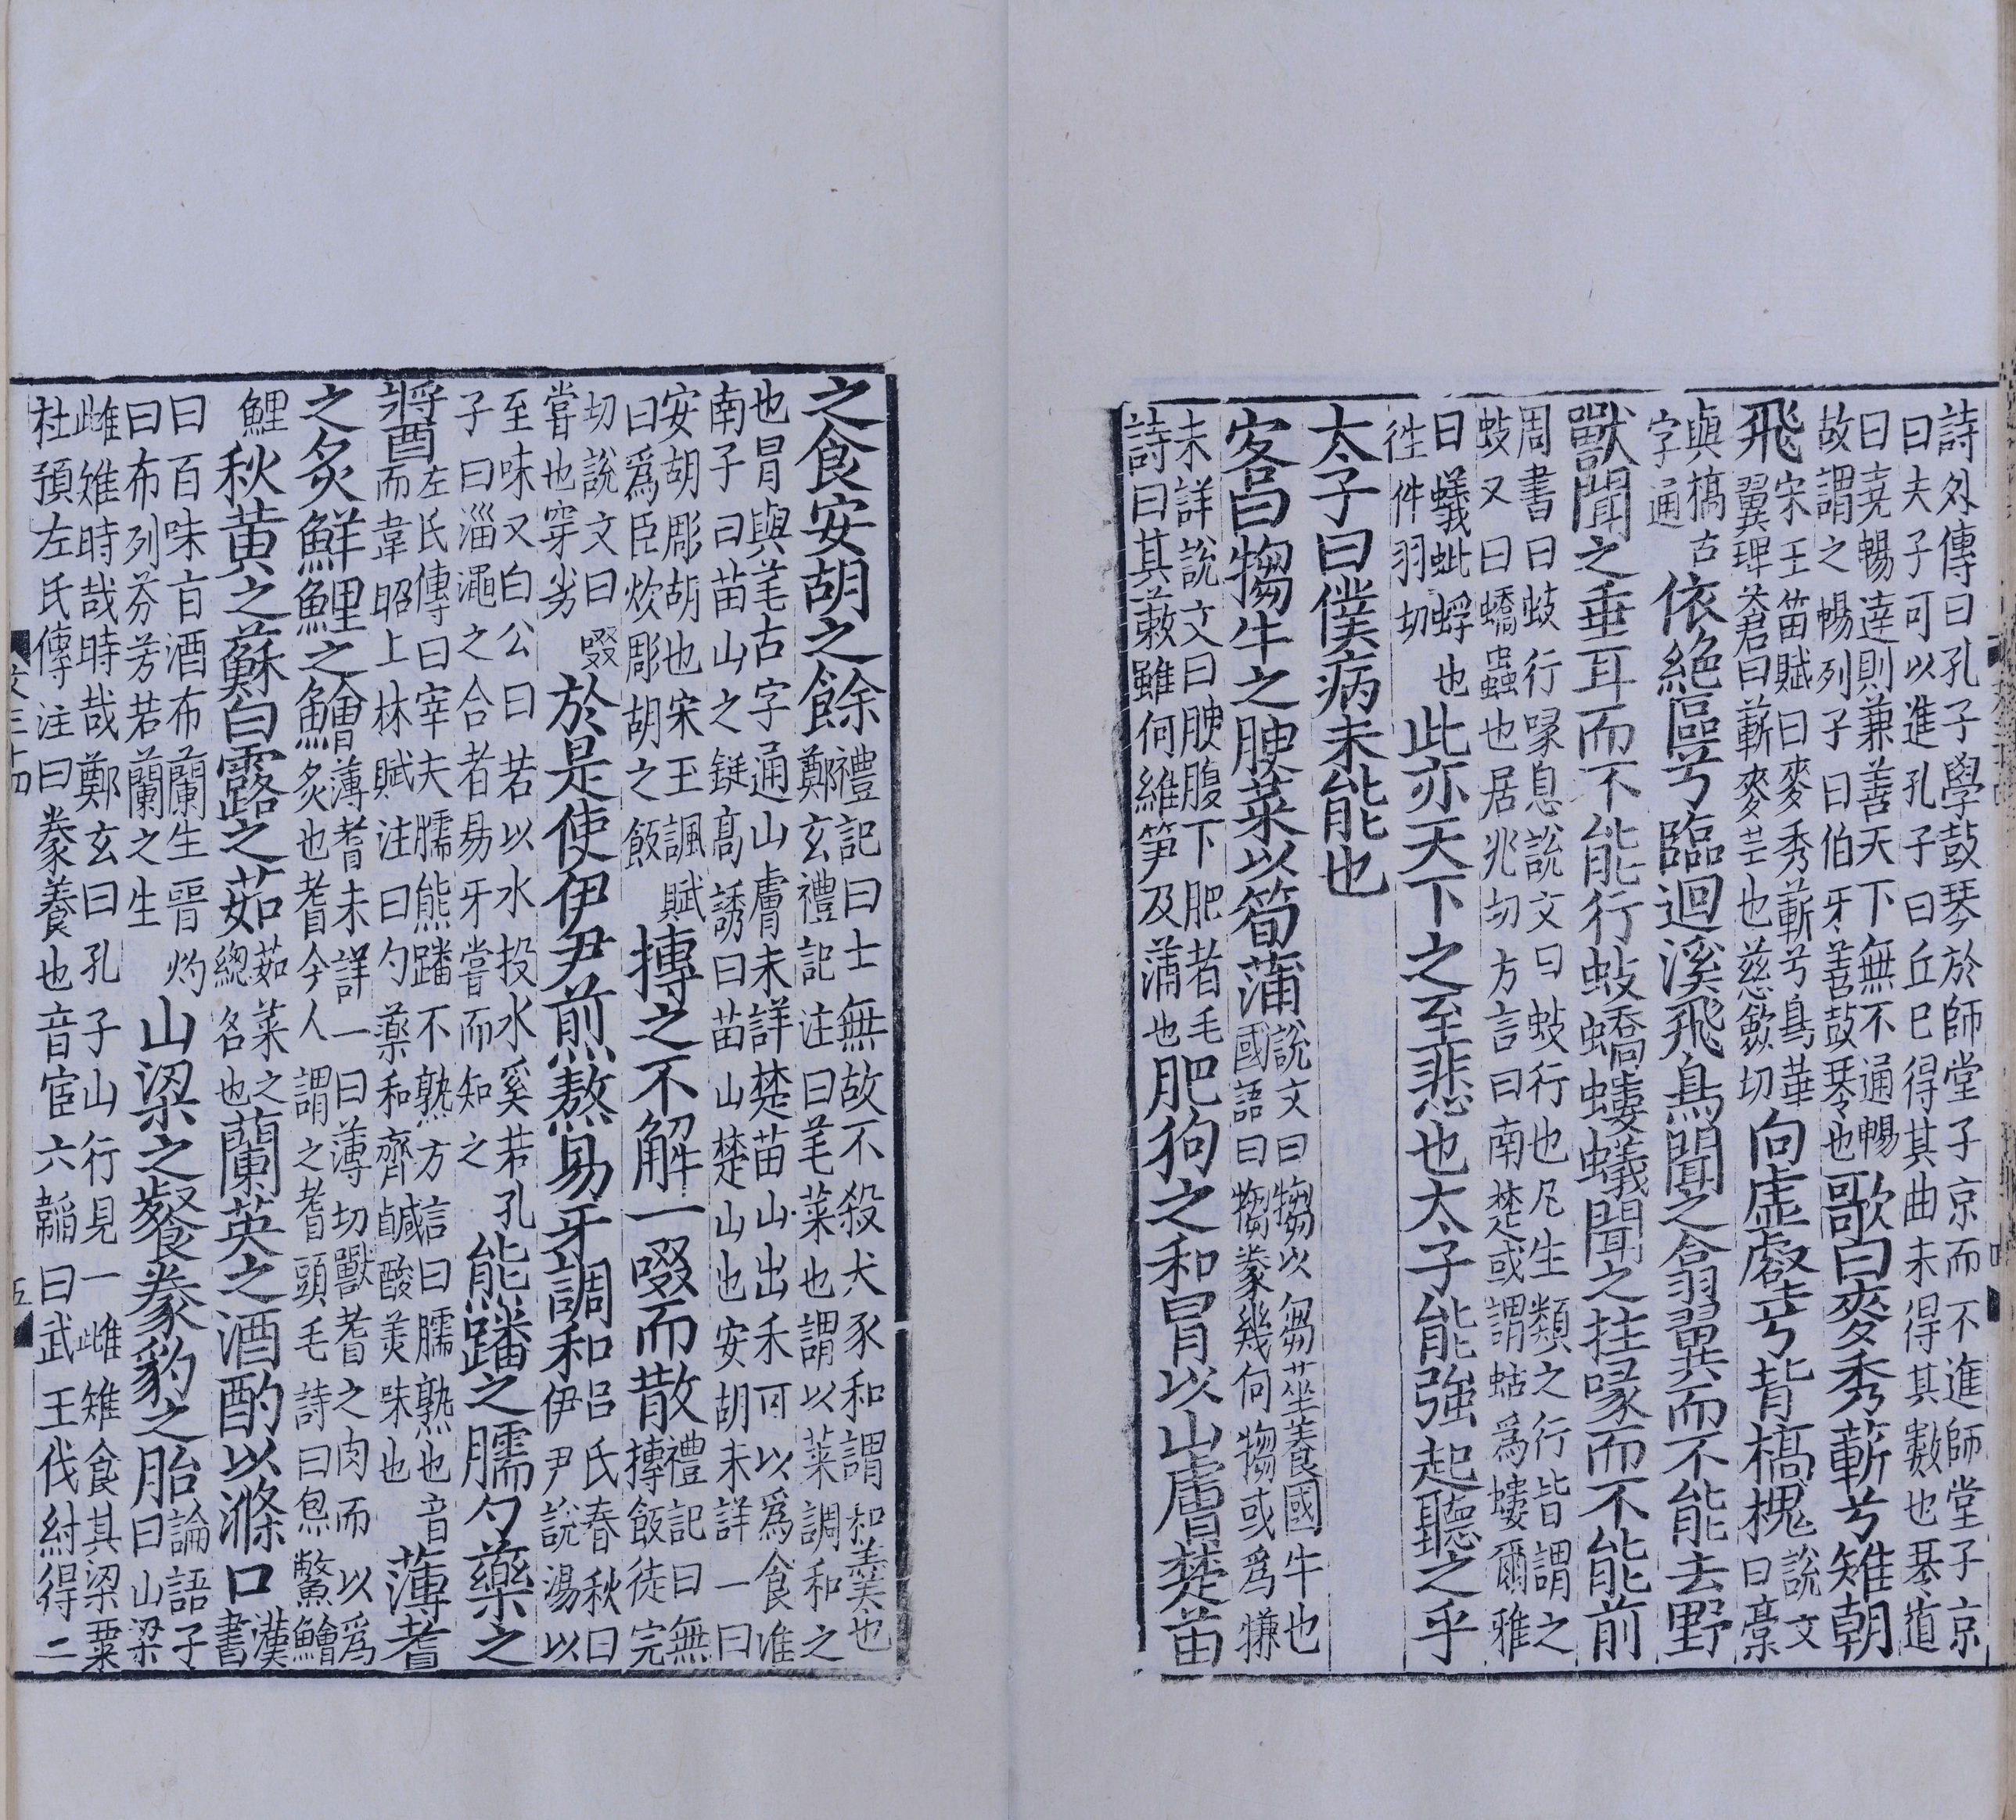 詩外傳曰孔子學鼓琴於師堂子京而不進師堂子京
曰夫子可以進孔子曰丘已得其曲未得其數也琴道
曰堯暢逹則兼善天下無不通暢
故謂之暢列子曰伯牙善鼓琴也
歌曰麥秀蔪兮雉朝
飛
宋玉笛賦曰麥秀蔪兮鳥華
翼埤蒼曰蔪麥芒也慈歛切
向虛壑兮背槁槐
說文
曰槀
與槁古
字通
依絶區兮臨迴溪飛鳥聞之翕翼而不能去野
獸聞之垂耳而不能行蚑蟜螻蟻聞之拄喙而不能前
周書曰蚑行喙息說文曰蚑行也凡生類之行皆謂之
蚑又曰蟜蟲也居兆切方言曰南楚或謂蛄爲螻爾雅
曰蟻蚍蜉也
徃件羽切
此亦天下之至悲也太子能強起聽之乎
太子曰僕病未能也
客曰犓牛之腴菜以筍蒲
說文曰犓以芻莝養國牛也
國語曰犓豢幾何犓或爲㹌
未詳說文曰腴腹下肥者毛
詩曰其蔌雖何維笋及蒲也
肥狗之和冒以山膚楚苗
之食安胡之餘
禮記曰士無故不殺犬豕和謂和羹也
鄭玄禮記注曰芼菜也謂以菜調和之
也冒與芼古字通山膚未詳楚苗山出禾可以爲食淮
南子曰苗山之鋋高誘曰苗山楚山也安胡未詳一曰
安胡彫胡也宋玉諷賦
曰爲臣炊彫胡之飯
摶之不解一啜而散
禮記曰無
摶飯徒完
切說文曰啜
嘗也穿劣
於是使伊尹煎熬易牙調和
呂氏春秋曰
伊尹說湯以
至味又白公曰若以水投水奚若孔
子曰淄澠之合者易牙嘗而知之
熊蹯之臑勺藥之
醬
左氏傳曰宰夫臑熊蹯不熟方言曰臑熟也音
而韋昭上林賦注曰勺藥和齊鹹酸羙味也
薄耆
之炙鮮鯉之鱠
薄耆未詳一曰薄切獸耆之肉而以爲
炙也耆今人謂之耆頭毛詩曰炰鱉鱠
鯉
秋黄之蘇白露之茹
茹菜之
總名也
蘭英之酒酌以滌口
漢書
曰百味旨酒布蘭生晋灼
曰布列芬芳若蘭之生
山梁之餐豢豹之胎
論語子
曰山梁
雌雉時哉時哉鄭玄曰孔子山行見一雌雉食其梁粟
杜預左氏傳注曰豢養也音宦六韜曰武王伐紂得二